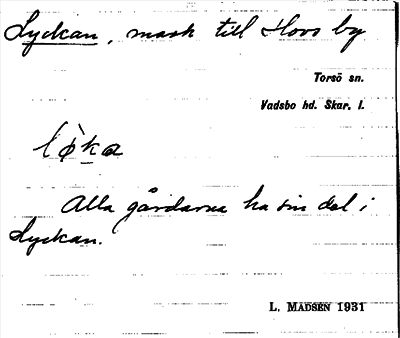 Lyckan, mark till Hovs by
Torsö sn.
Vadsbo hd. Skar. l.
Alla gårdarna ha sin del i
Lyckan.
L. MADSÉN 1931